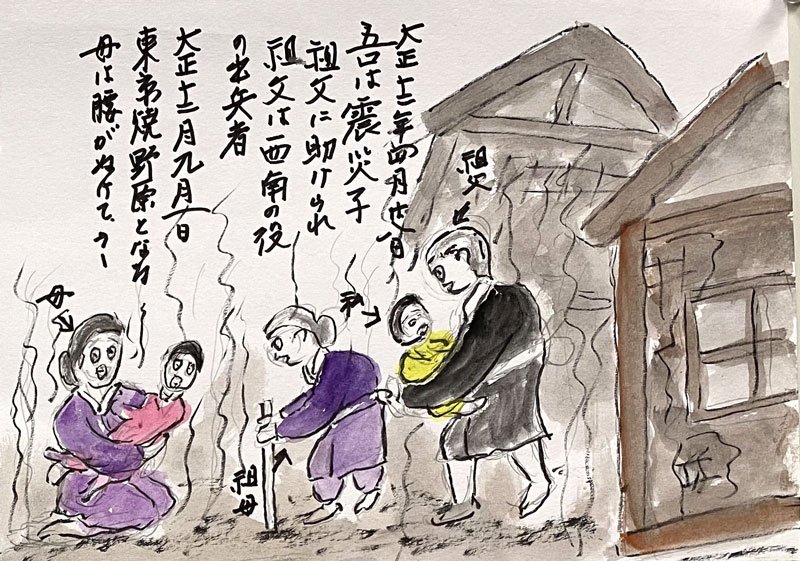 大正十二年四月廿八日
吾は震災子
祖父に助けられ
祖父は西南の役
の出兵者
大正十二年九月一日
東京焼野原となる
母は腰がぬけて、う〜
祖父
私
祖母
母